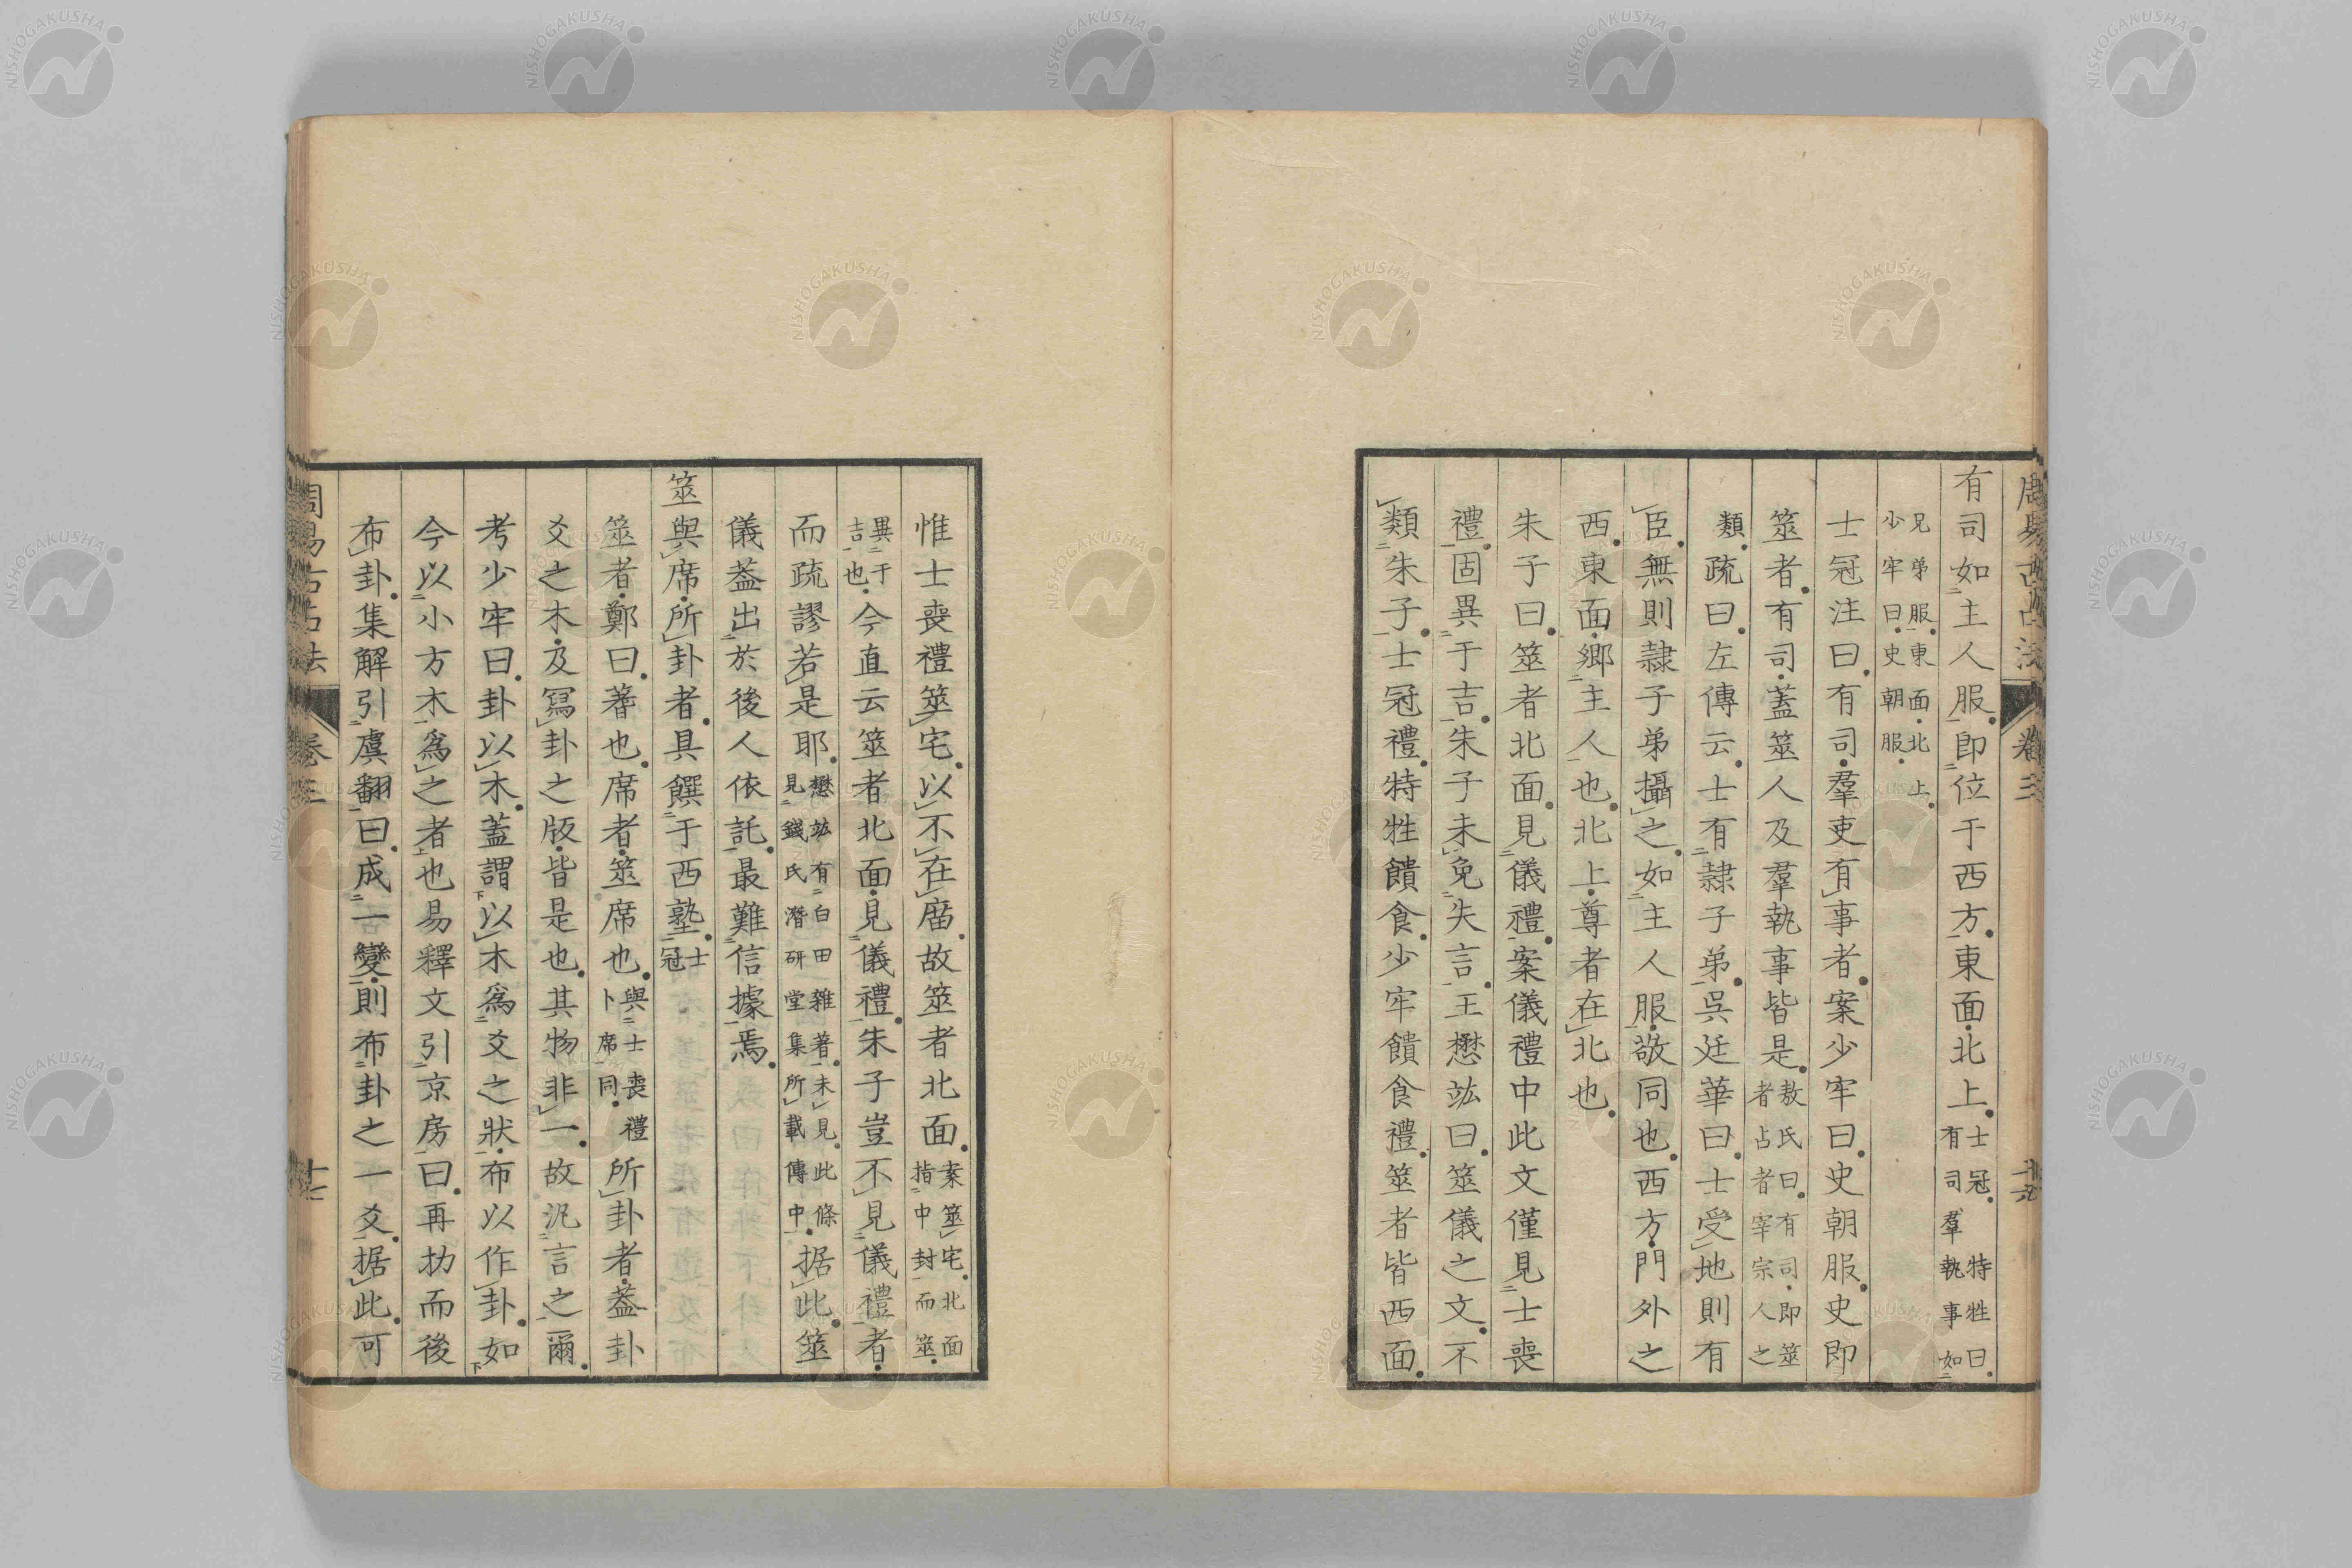 有司如主人服。即位于西方。東面北上。士冠。有司羣執事如特牲曰。如
兄弟服。東面北上。少牢曰。史朝服。
士冠注曰。有司羣吏有事者。案少牢曰。史朝服。史即
筮者。有司蓋筮人及羣執事皆是。敖氏曰。有司即筮者占者宰宗人之
類。疏曰。左傳云。士有隷子弟。吳廷華曰。士受地則有
臣。無則隷子弟攝之。如主人服。敬同也。西方門外之
西。東面鄉主人也。北上尊者在北也。
朱子曰。筮者北面。見儀禮。案儀禮中此文僅見士喪
禮。固異于吉。朱子未免失言。王懋竑曰。筮儀之文。不
類朱子。士冠禮。特牲饋食。少牢饋食禮。筮者皆西面。
惟士喪禮筮宅。以不在廟。故筮者北面。案筮宅。北面指中封而筮。
異于吉也。今直云筮者北面。見儀禮。朱子豈不見儀禮者。
而疏謬若是耶。懋竑有白田雜著。未見。此條見錢氏潛研堂集所載傳中。据此。筮
儀葢出於後人依託。最難信據焉。
筮與席。所卦者。具饌于西塾。士冠
筮者。鄭曰。蓍也。席者。筮席也。與士喪禮卜席同。所卦者。葢卦
爻之木。及寫卦之版。皆是也。其物非一。故汎言之爾。
考少牢曰。卦以木。蓋謂以木爲爻之狀。布以作卦。如
今以小方木爲之者也。易釋文引京房曰。再扐而後
布卦。集解引虞翻曰。成一變。則布卦之一爻。据此。可
周易古占法 卷三
周易古占法 卷三 十七